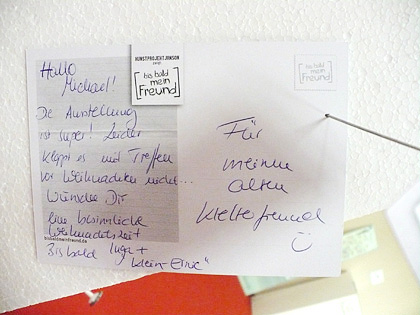 Hallo
Michael!
Die Ausstellung
ist super! Leider
klappt es mit Treffen
vor Weihnachten nicht...
Wünsche Dir
eine besinnliche
Weihnachtszeit
bisbaldmeinfreund.de
Bis bald Inga +
"klein-Erna"
KUNSTPROJEKT JUNSON
[bis bald
mein
Freund]
[bis bald
mein
Freund]
Für
meinen
alten
Kletterfreund